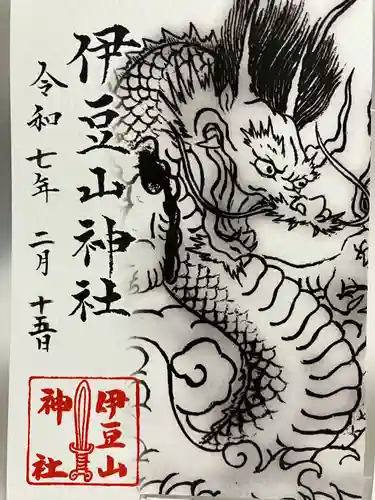 伊豆山神社
令和七年 二月 十五日
伊豆山
神社